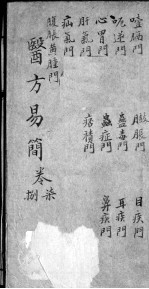 噎膈門
呃逆門
心胃門
肝氣門
疝氣門
腹脹黃膧門
臌脹門
蠱毒門
蟲症門
痞積門
目疾門
耳疾門
鼻疾門
醫方易簡
卷
柒
捌